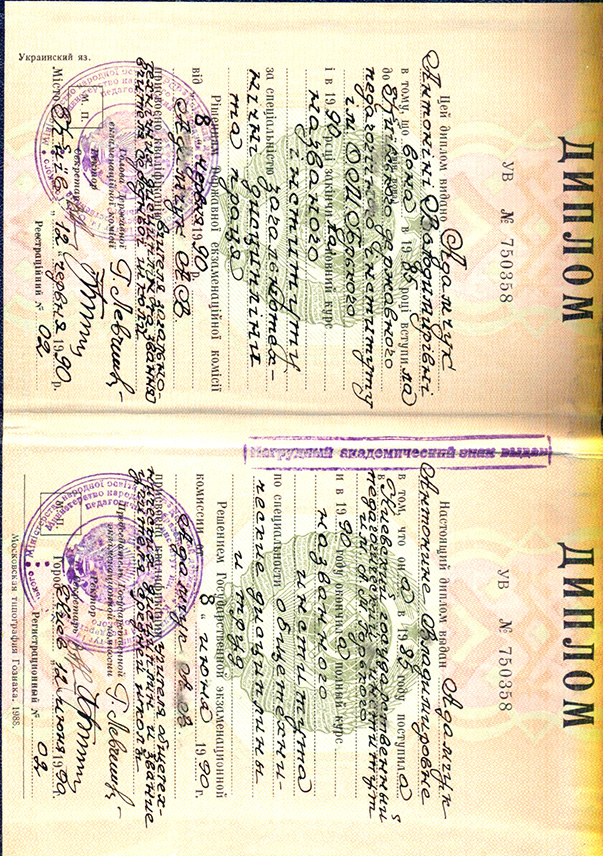 Украинский яз.
ДИПЛОМ
УВ № 750358
Цей диплом видано Адамчук
Антоніні Володимирівні
в тому, що вона в 1985 році вступила
до Київського державного
педагогічного інституту
ім. О.М. Горького
і в 1990 році закінчила повний курс
названого
інституту
за спеціальністю загальнотех-
нічні дисципліни
та праця
Рішенням Державної екзаменаційної комісії
від 8 червня 1990 р.
Адамчук А.В.
присвоєно кваліфікацію вчителя загально-
технічних дисциплін звання
вчителя середньої школи
М. П.
Голова Державної
екзаменаційної комісії
Ректор
Секретар
Місто Київ „12" червня 1990 р.
Реєстраційний № 02
Нагрудный академический знак выдан
ДИПЛОМ
УВ № 750358
Настоящий диплом выдан Адамчук
Антонине Владимировне
в том, что она в 1985 году поступила в
Киевский государственный
педагогический институт
им. А.М. Горького
и в 1990 году окончила полный курс
названного
института
по специальности общетехни-
ческие дисциплины
и труд
Решением Государственной экзаменационной
комиссии от „8" июня 1990 г.
Адамчук А.В.
присвоена квалификация учителя общетех-
нических дисциплин и звание
учителя средней школы
Председатель Государственной
экзаменационной комиссии
Ректор
Секретарь
Город Киев 12 июня 1990 г.
Регистрационный № 02
Московская типография Гознака. 1988.